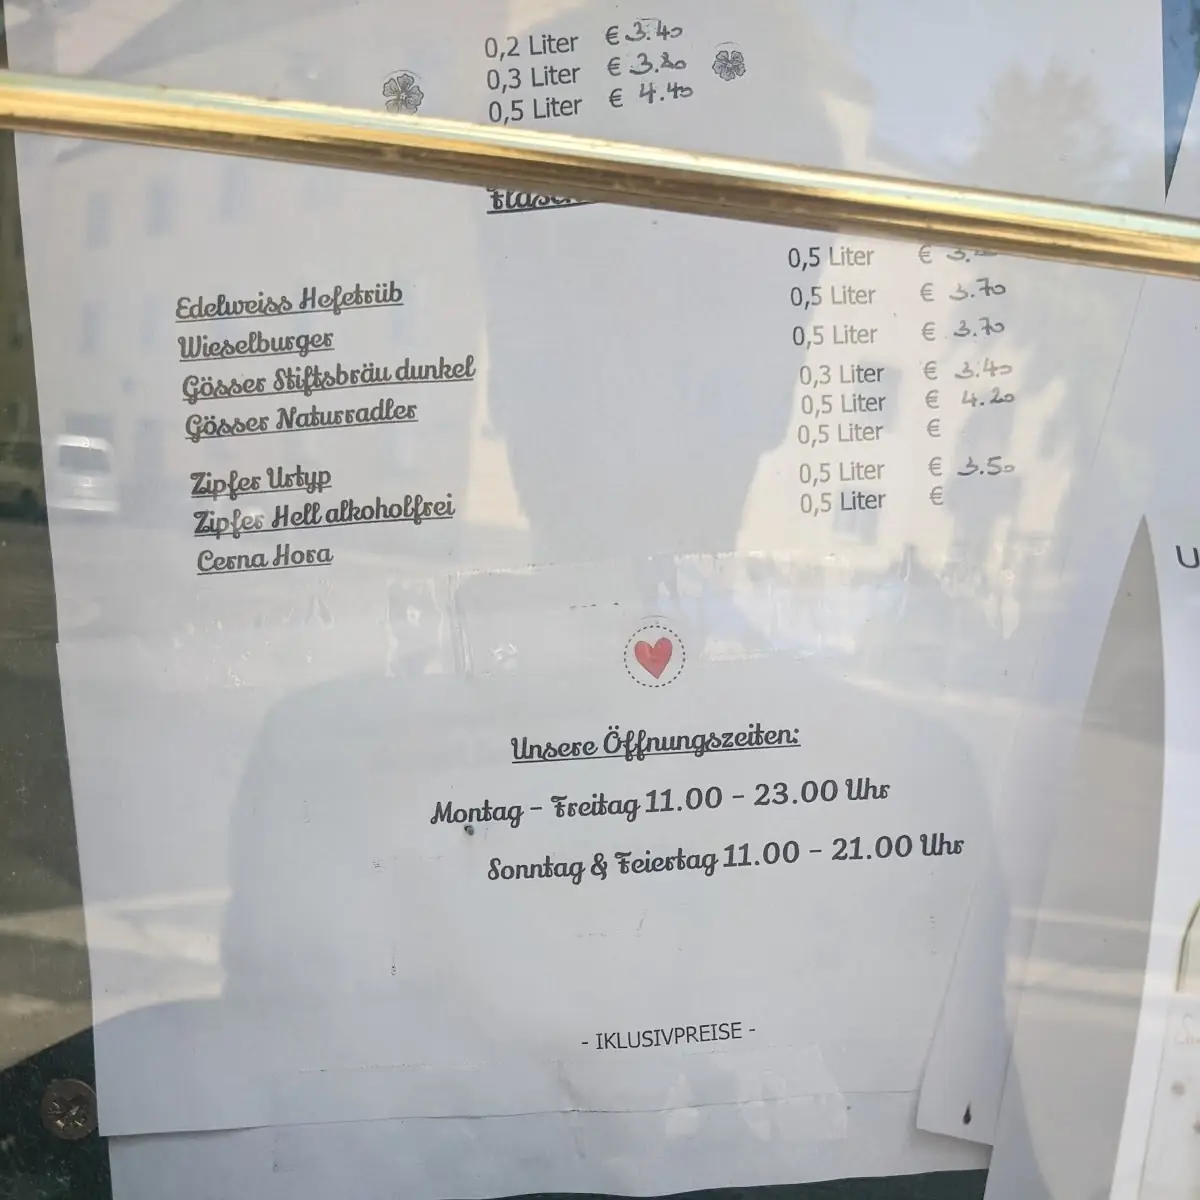 0,2 Liter € 3.40
0,3 Liter € 3.80
0,5 Liter € 4.40
Edelweiss Hefetrüb 0,5 Liter €
Wieselburger 0,5 Liter € 3.70
Gösser Stiftsbräu dunkel 0,5 Liter € 3.70
Gösser Naturradler 0,3 Liter € 3.40
0,5 Liter € 4.20
Zipfer Urtyp 0,5 Liter €
Zipfer Hell alkoholfrei 0,5 Liter € 3.50
Cerna Hora 0,5 Liter €
Unsere Öffnungszeiten:
Montag – Freitag 11.00 – 23.00 Uhr
Sonntag & Feiertag 11.00 – 21.00 Uhr
- IKLUSIVPREISE -